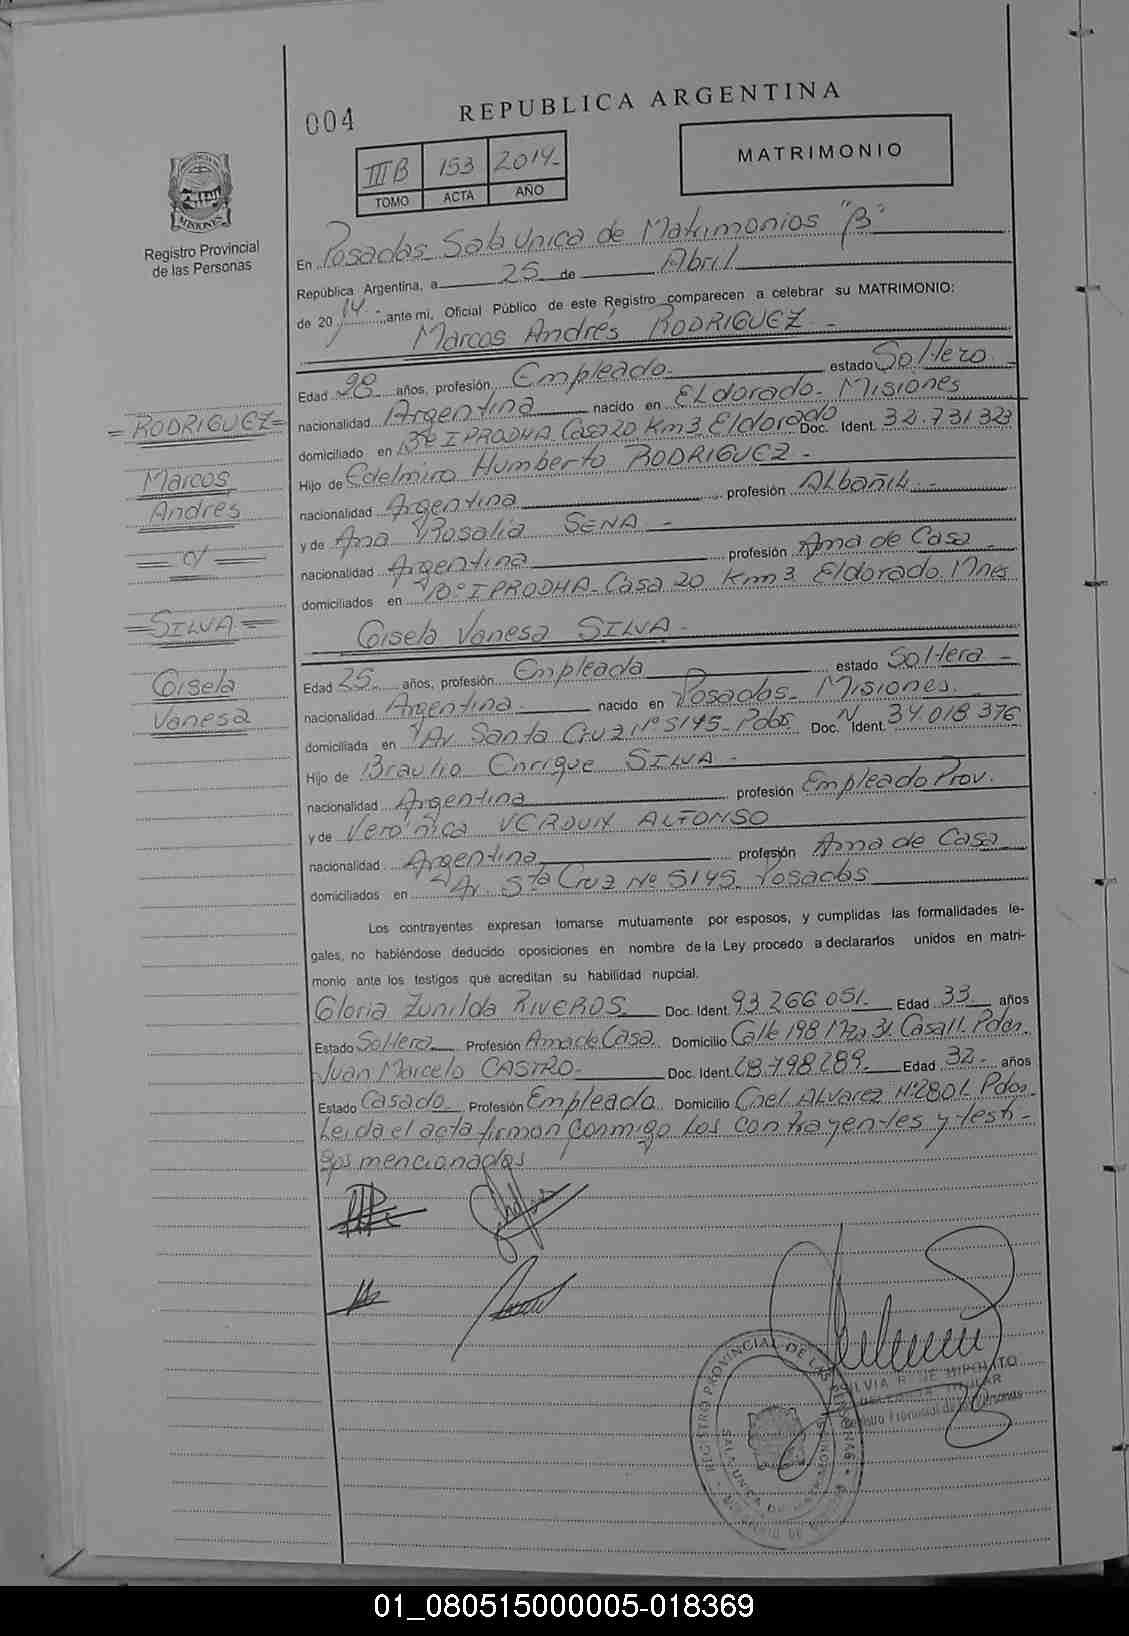 004
REPUBLICA ARGENTINA
III B 153 2014.-
TOMO ACTA AÑO
MATRIMONIO
MISIONES
Registro Provincial
de las Personas
En Posadas Sala Unica de Matrimonios "B"
República Argentina, a 25 de Abril
de 2014.- ante mi, Oficial Público de este Registro comparecen a celebrar su MATRIMONIO:
Marcos Andrés RODRIGUEZ.-
Edad 28 años, profesión Empleado. estado Soltero.
nacionalidad Argentina nacido en Eldorado. Misiones
domiciliado en Bº IPRODHA Casa 20 Km 3 Eldorado Doc. Ident. 32.731.323
Hijo de Edelmiro Humberto RODRIGUEZ.-
nacionalidad Argentina profesión Albañil.-
y de Ana Rosalia SENA.-
nacionalidad Argentina profesión Ama de Casa
domiciliados en Bº IPRODHA. Casa 20 Km 3 Eldorado Mnes
Gisela Vanesa SILVA.-
Edad 25 años, profesión Empleada estado Soltera.-
nacionalidad Argentina.- nacido en Posadas. Misiones.
domiciliada en Av. Santa Cruz Nº 5145. Pdas Doc. N Ident. 34.018.376
Hijo de Braulio Enrique SILVA.-
nacionalidad Argentina profesión Empleado Prov.
y de Verónica VERDUIX ALFONSO
nacionalidad Argentina profesión Ama de Casa
domiciliados en Av. Sta Cruz Nº 5145. Posadas
Los contrayentes expresan tomarse mutuamente por esposos, y cumplidas las formalidades le-
gales, no habiéndose deducido oposiciones en nombre de la Ley procedo a declararlos unidos en matri-
monio ante los testigos que acreditan su habilidad nupcial.
Gloria Zunilda RIVEROS. Doc. Ident. 93.266.051. Edad 33 años
Estado Soltera Profesión Ama de Casa. Domicilio Calle 198 Mza 31. Casa 11. Pdas.
Juan Marcelo CASTRO. Doc. Ident. 28.798.289. Edad 32.- años
Estado Casado Profesión Empleado Domicilio Cnel Alvarez Nº 2801. Pdas
Leida el acta firman conmigo los contrayentes y testi-
gos mencionados
= RODRIGUEZ =
Marcos
Andrés
= c/ =
= SILVA =
Gisela
Vanesa
SILVIA R. DE HIPOLITO
REGISTRO PROVINCIAL DE LAS PERSONAS
SALA UNICA DE MATRIMONIOS
01_080515000005-018369